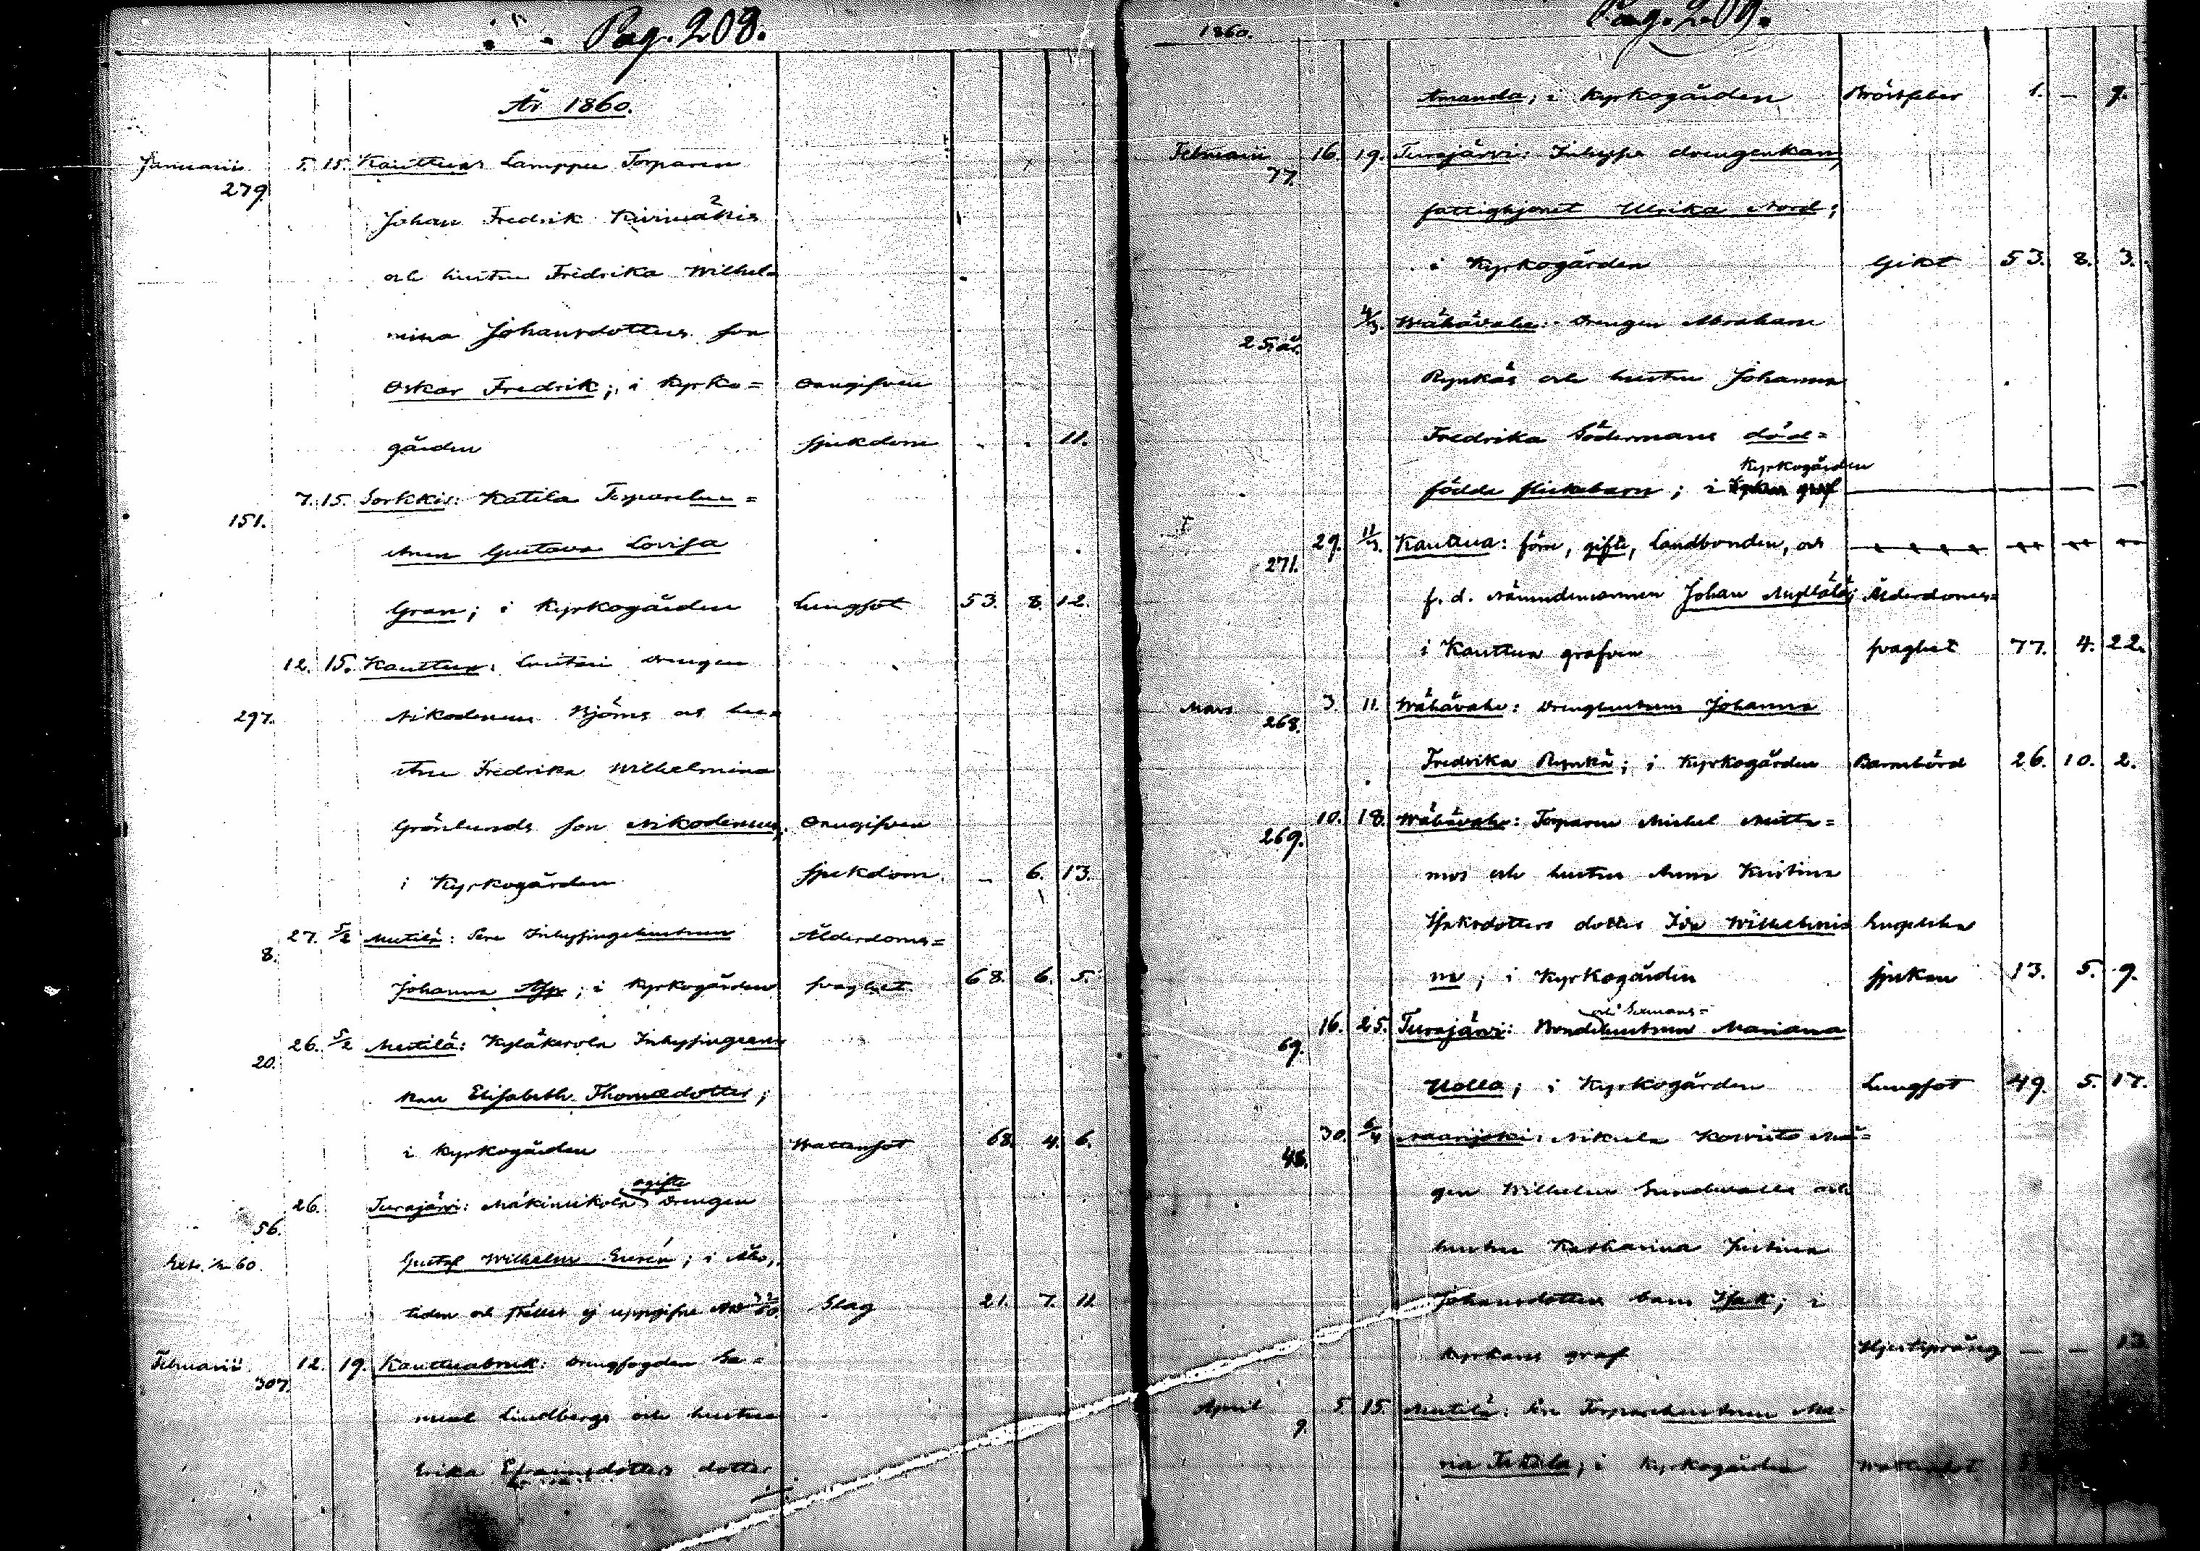 Pag. 208.
År 1860.
Januarii 5. 15. Kauttua: Lamppu Torparen
279.
Johan Fredrik Kivimäkis
och hustru Fredrika Wilhel-
mina Johansdotters son
Oskar Fredrik; i Kyrko= Onugifven
gården sjukdom - . 11.
7. 15. Sorkkis: Katila Torparehu=
151.
strun Gustava Lovisa
Gran; i Kyrkogården Lungsot 53. 8. 12.
12. 15. Kauttua: Drengen
297. Nikodemus Björns och hu=
stru Fredrika Wilhelmina
Grönlunds son Nikodemus, Onugifven
i Kyrkogården sjukdom. - 6. 13.
27. 5/2 Mestilä: Inhysingehustrun Ålderdoms=
8.
Johanna; i Kyrkogården svaghet 68. 6. 5.
26. 5/2 Mestilä: Kyläkarola Inhysingeen
20.
kan Elisabeth Thomædotter;
i Kyrkogården Wattensot 68. 4. 6.
ogifte
26. Turajärvi: Mäkinikola Drengen
56.
Gustaf Wilhelm Eurén; i Åbo,
60.
tiden och stället ej uppgifne Slag 21. 7. 11.
Februarii 12. 19. Kauttuabruk: Drengfogden Sa=
307.
muel Lindbergs och hustru
Erika Efraimsdotters dotter
1860.
Pag. 209.
Amanda; i Kyrkogården Bröstfeber 1. - 9.
Februarii 16. 19. Turajärvi: Inhyse drengenkan,
77.
fattighjonet Ulrika Nord;
i Kyrkogården Gikt 53. 8. 3.
4/3. Wähävaho: Drengen Abraham
25.
Rynkäs och hustru Johanna
Fredrika Södermans död=
Kyrkogården
födda flickebarn; i Kyrkans graf
29. 11/3. Kauttua: förre, gifte, Landbonden, och
271.
f. d. Nämndemannen Johan; Ålderdoms=
i Kauttua grafven svaghet 77. 4. 22.
Mars 3 11. Wähävaho: Drenghustrun Johanna
268.
Fredrika Rynkä; i Kyrkogården Barnsbörd 26. 10. 2.
10. 18. Wähävaho: Torparen Michel
269.
och hustru Anna Kristina
Isaksdotters dotter Ida Wilhelmi Engelska
na; i Kyrkogården sjukan 13. 5. 9.
16. 25. Turajärvi: Bondehustrun Mariana
69.
Uolla; i Kyrkogården Lungsot 49. 5. 17.
30. Naarijoki: Nikula
48.
gen Wilhelm Sundevalls och
hustru Katharina Justina
Johansdotters barn Isak; i
Kyrkans graf Hjertsprång - - 13
April 5. 15. Mestilä: Torparehustrun Ma-
9.
ria; i Kyrkogården